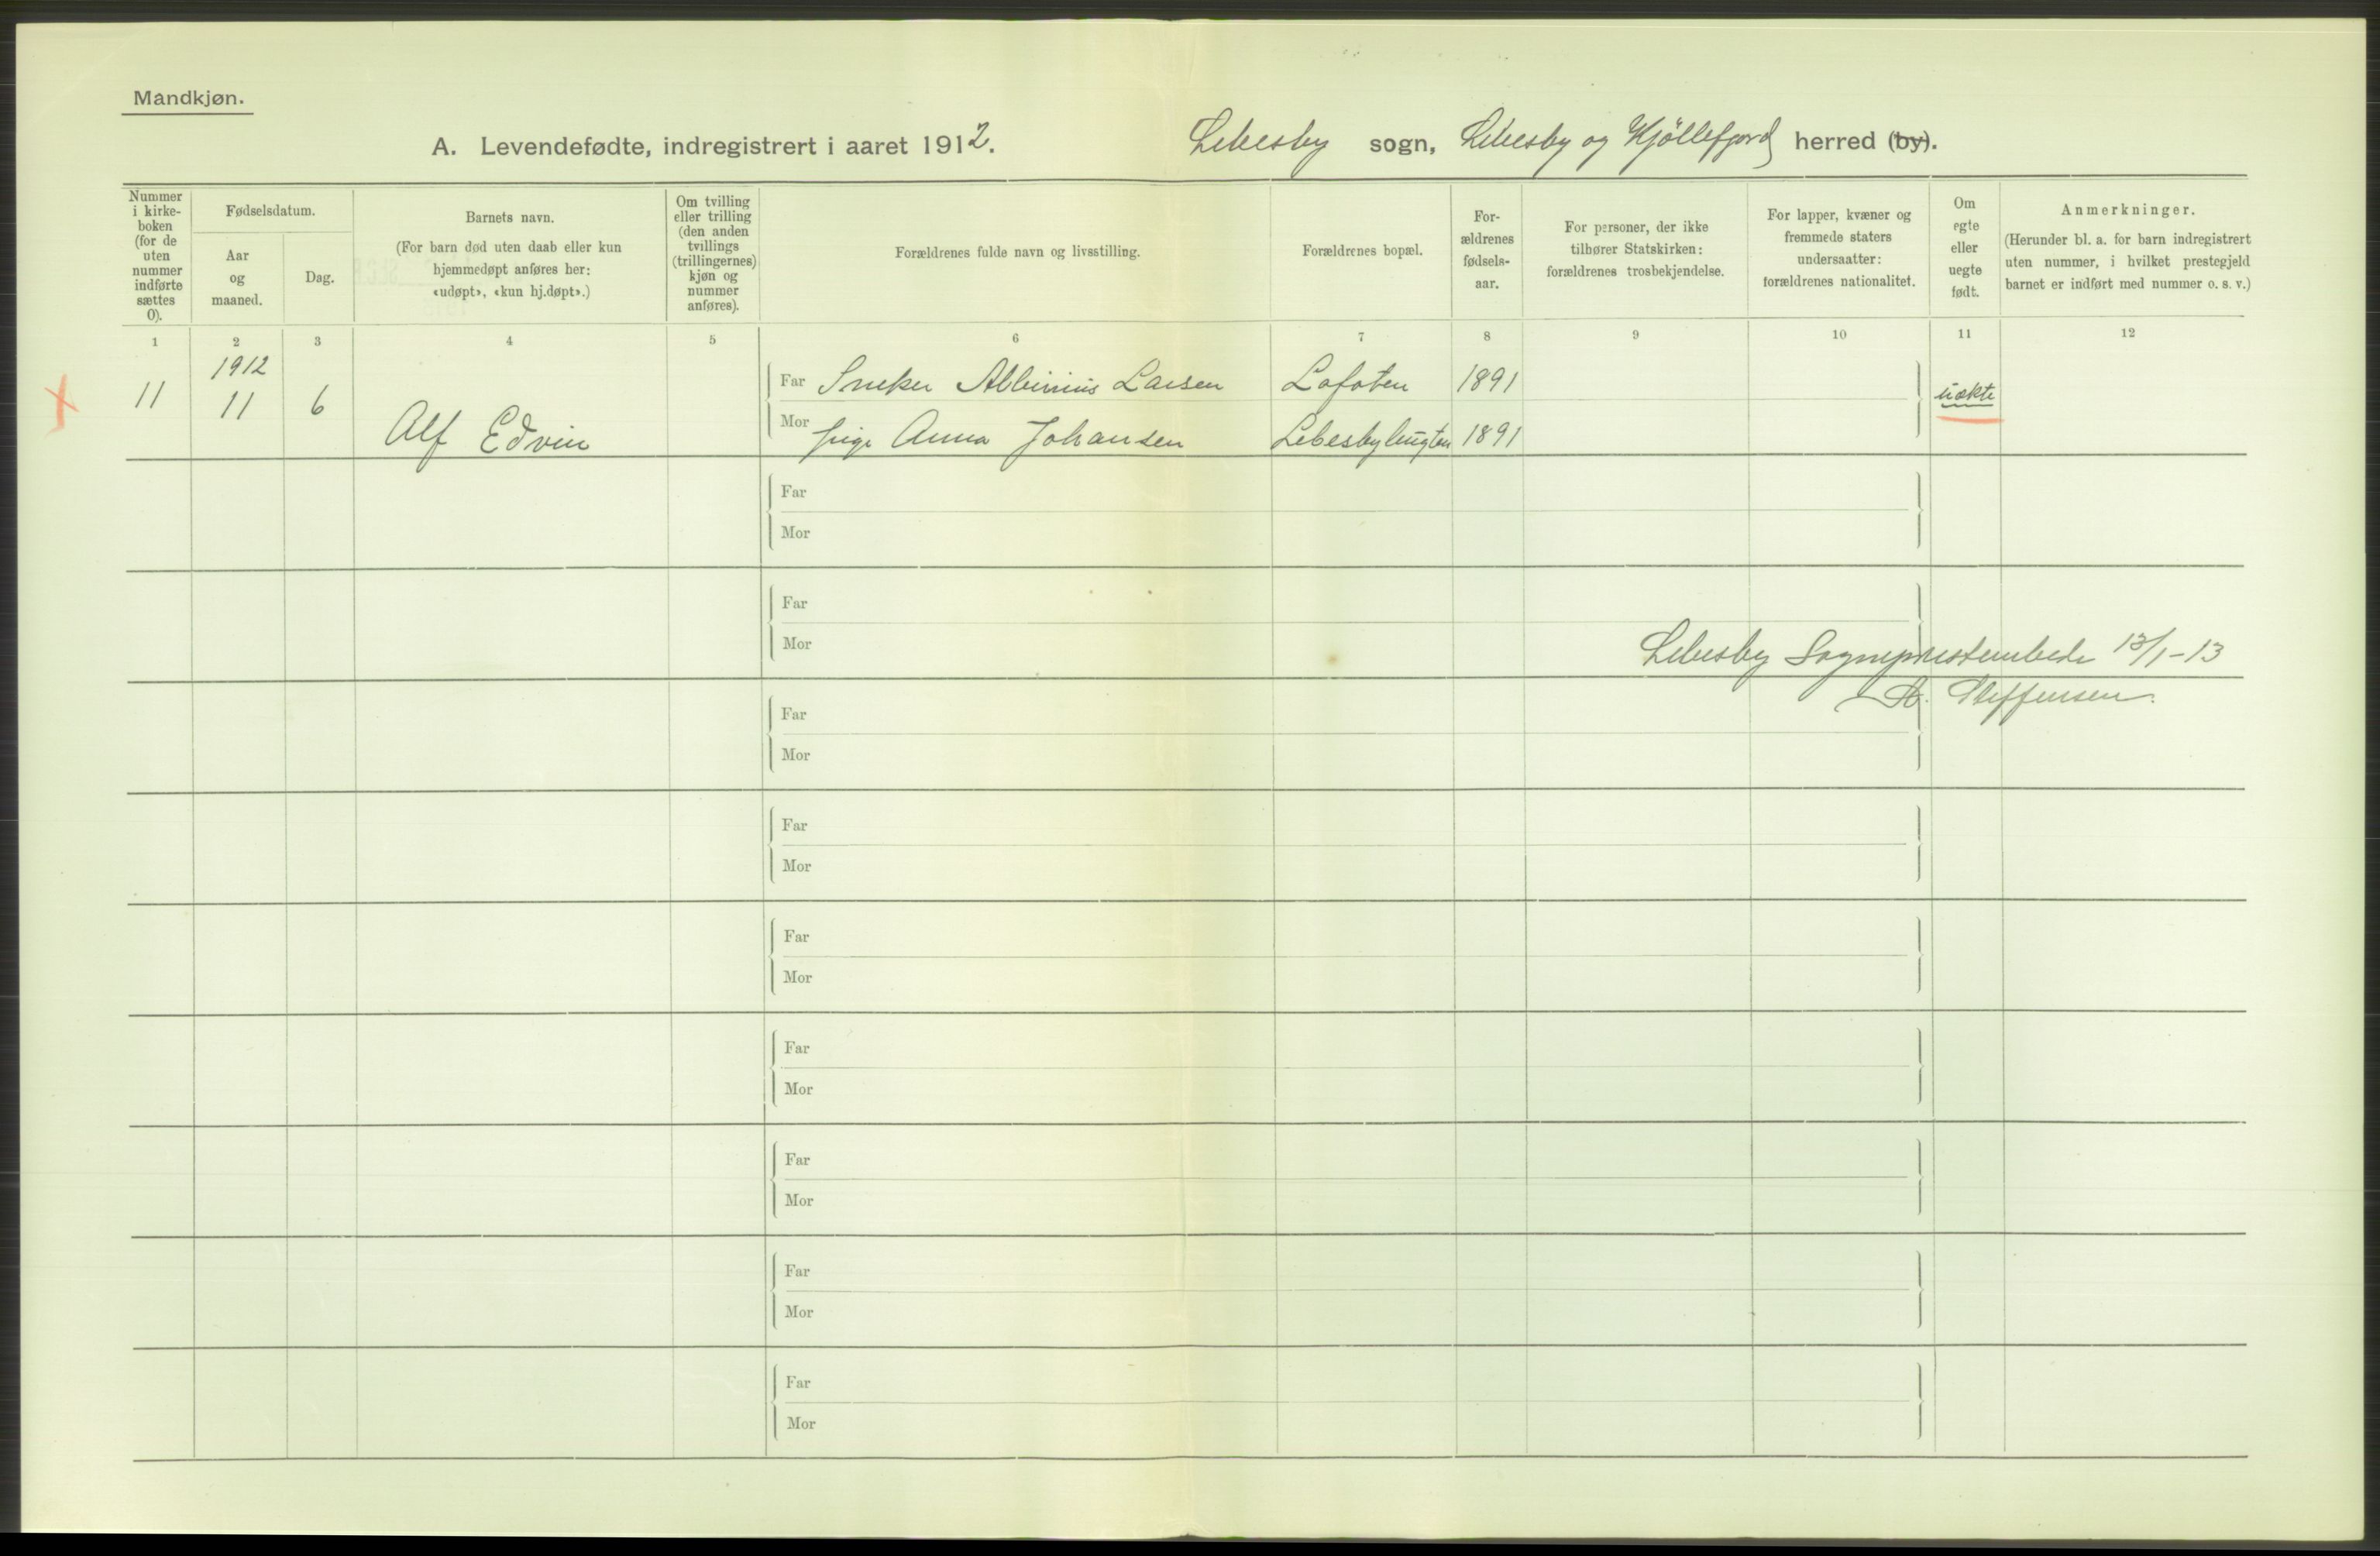 Mandkjøn.
A. Levendefødte, indregistrert i aaret 1912. Lebesby sogn, Lebesby og Kjöllefjord herred (by).
Nummer i kirke-
boken
(for de
uten
nummer
indførte
sættes
0).
Fødselsdatum.
Aar
og
maaned.
Dag.
Barnets navn.
(For barn død uten daab eller kun
hjemmedøpt anføres her:
«udøpt», «kun hj.døpt».)
Om tvilling
eller trilling
(den anden
tvillings
(trillingernes)
kjøn og
nummer
anføres).
Forældrenes fulde navn og livsstilling.
Forældrenes bopæl.
For-
ældrenes
fødsels-
aar.
For personer, der ikke
tilhører Statskirken:
forældrenes trosbekjendelse.
For lapper, kvæner og
fremmede staters
undersaatter:
forældrenes nationalitet.
Om
egte
eller
uegte
født.
Anmerkninger.
(Herunder bl. a. for barn indregistrert
uten nummer, i hvilket prestegjeld
barnet er indført med nummer o. s. v.)
1 2 3 4 5 6 7 8 9 10 11 12
1912
11 11 6 Alf Edvin
Far Sneker Albinius Larsen Lofoten 1891
uækte
Mor pige Anna Johansen Lebesbylengten 1891
Far
Mor
Far
Mor
Lebesby Sogneprestembede 13/1-13
Steffensen.
Far
Mor
Far
Mor
Far
Mor
Far
Mor
Far
Mor
Far
Mor
Far
Mor